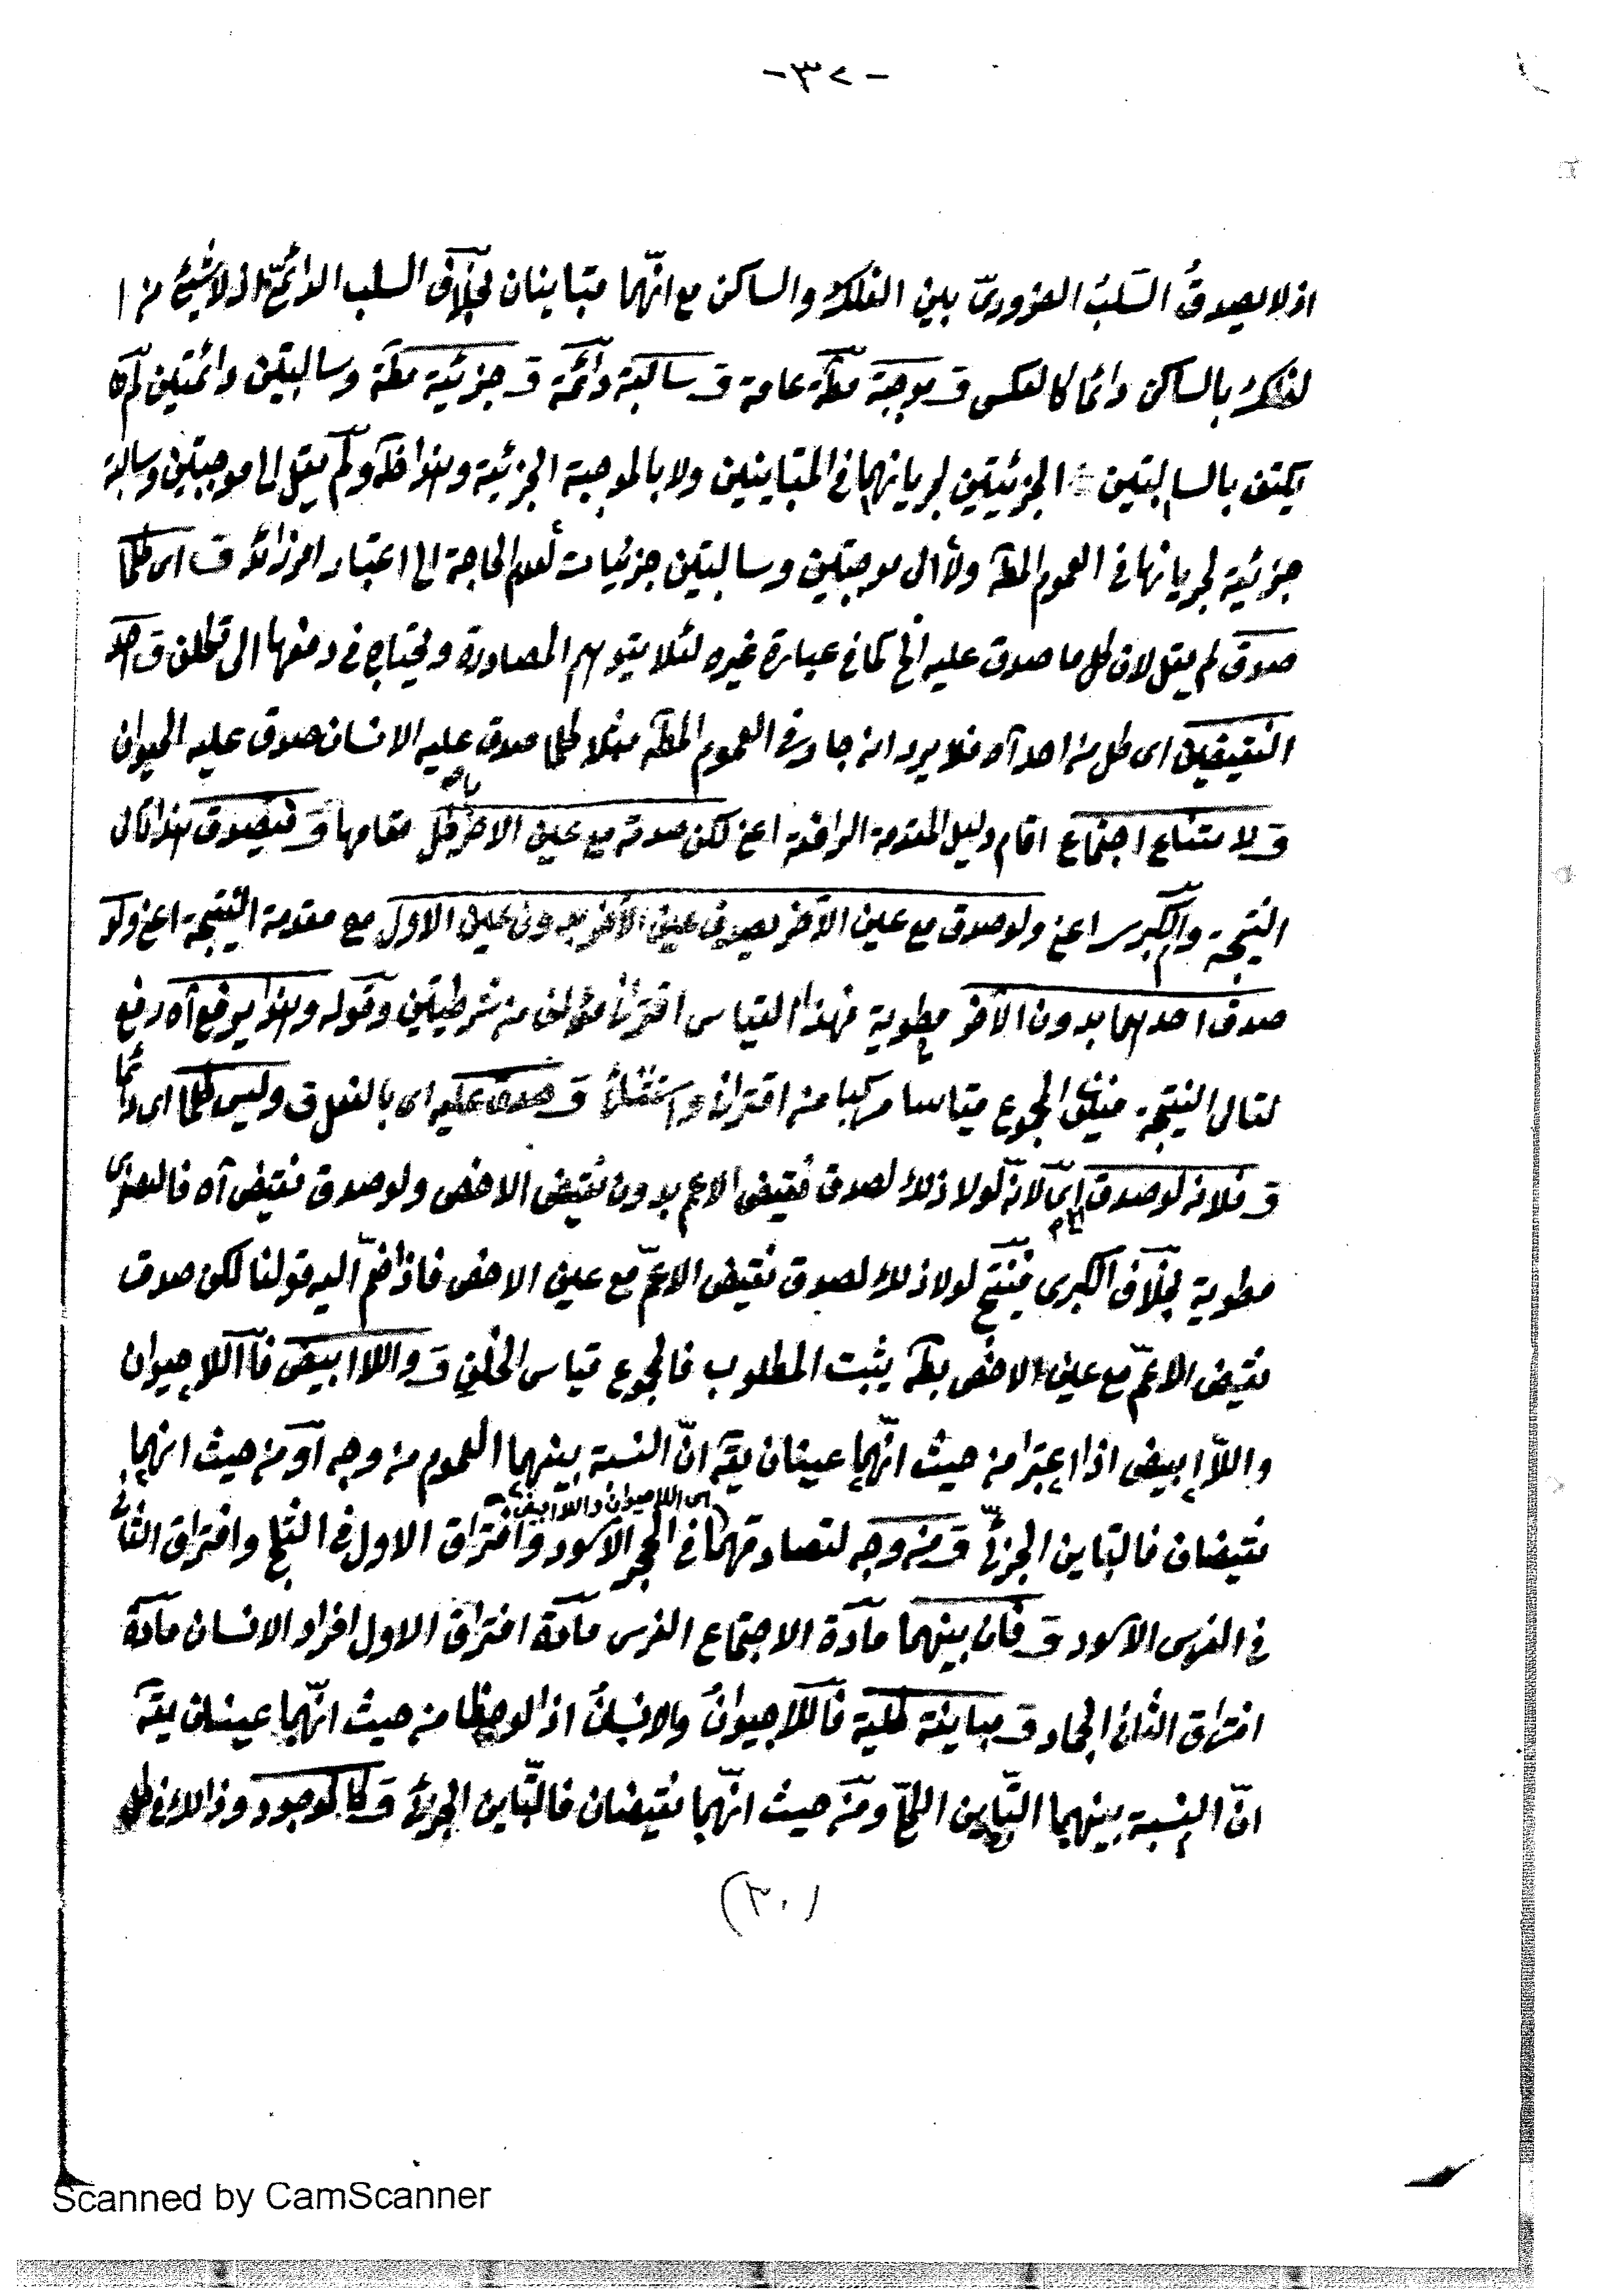 - ٣٧ -
اذ لا يصدق السلب الضرورى بين الفلك والساكن مع انهما متباينان بخلاف السلب الدائم اذ لا شيئ من ا
لفلك بالساكن دائما كالعكس قـ موجبة مطة عامة قـ سالبة دائمة قـ جزئية مطة وسالبتين دائمتين لم
يكتف بالسالبتين الجزئيتين لجريانهما فى المتباينين ولا بالموجبة الجزئية ولم يقل الى موجبتين وسالبة
جزئية لجريانها فى العموم المط ولا الى موجبتين وسالبتين جزئيات لعدم الحاجة الى اعتبار امر زائد قـ اى كلما
صدق لم يقل لان كل ما صدق عليه الخ كما فى عبارة غيره لئلا يتوهم المصادرة ويحتاج فى دفعها الى قـ احد
النقيضين اى كل من احد آه فلا يرد انه جار فى العموم المط مثلا كلما صدق عليه الانسان صدق عليه الحيوان
قـ ولامتناع اجتماع اقام دليل المقدمة الرافعة اعنى لكن صدقه مع عين الاخر بط مقامها قـ فيصدق هذا تالى
النتيجة والكبرى اعنى ولو صدق مع عين الآخر يصدق عين الآخر بدون عين الاول مع مقدمة النتيجة اعنى ولو
صدق احدهما بدون الآخر مطوية فهذا القياس اقترانى مؤلف من شرطيتين وقوله وهذا يرفع آه رفع
لتالى النتيجة فيكون المجموع قياسا مركبا من اقترانى واستثنائى قـ صدق عليه اى بالفعل قـ وليس كلما اى دائما
قـ فلانه لو صدق اى لانه لولا ذلك لصدق نقيض الاعم بدون نقيض الاخص ولو صدق نقيض آه فالصغرى
مطوية بخلاف الكبرى فينتج لولا ذلك لصدق نقيض الاعم مع عين الاخص فاذا ضم اليه قولنا لكن صدق
نقيض الاعم مع عين الاخص بط يثبت المطلوب فالمجموع قياس الخلف قـ واللا ابيض فاللاحيوان
واللا ابيض اذا اعتبرا من حيث انهما عينان يقـ ان النسبة بينهما العموم من وجه او من حيث انهما
اى اللاحيوان واللاابيض
نقيضان فالتباين الجزئى قـ من وجه لتصادقهما فى الحجر الاسود وافتراق الاول فى الثلج وافتراق الثانى
فى الفرس الاسود قـ فان بينهما مادة الاجتماع الفرس مادة افتراق الاول افراد الانسان مادة
افتراق الثانى الجماد قـ مباينة كلية فاللاحيوان والانسان اذا لوحظا من حيث انهما عينان يقـ
ان النسبة بينهما التباين الكلى ومن حيث انهما نقيضان فالتباين الجزئى قـ كالموجود وذلك فى كل
(٢٠)
Scanned by CamScanner